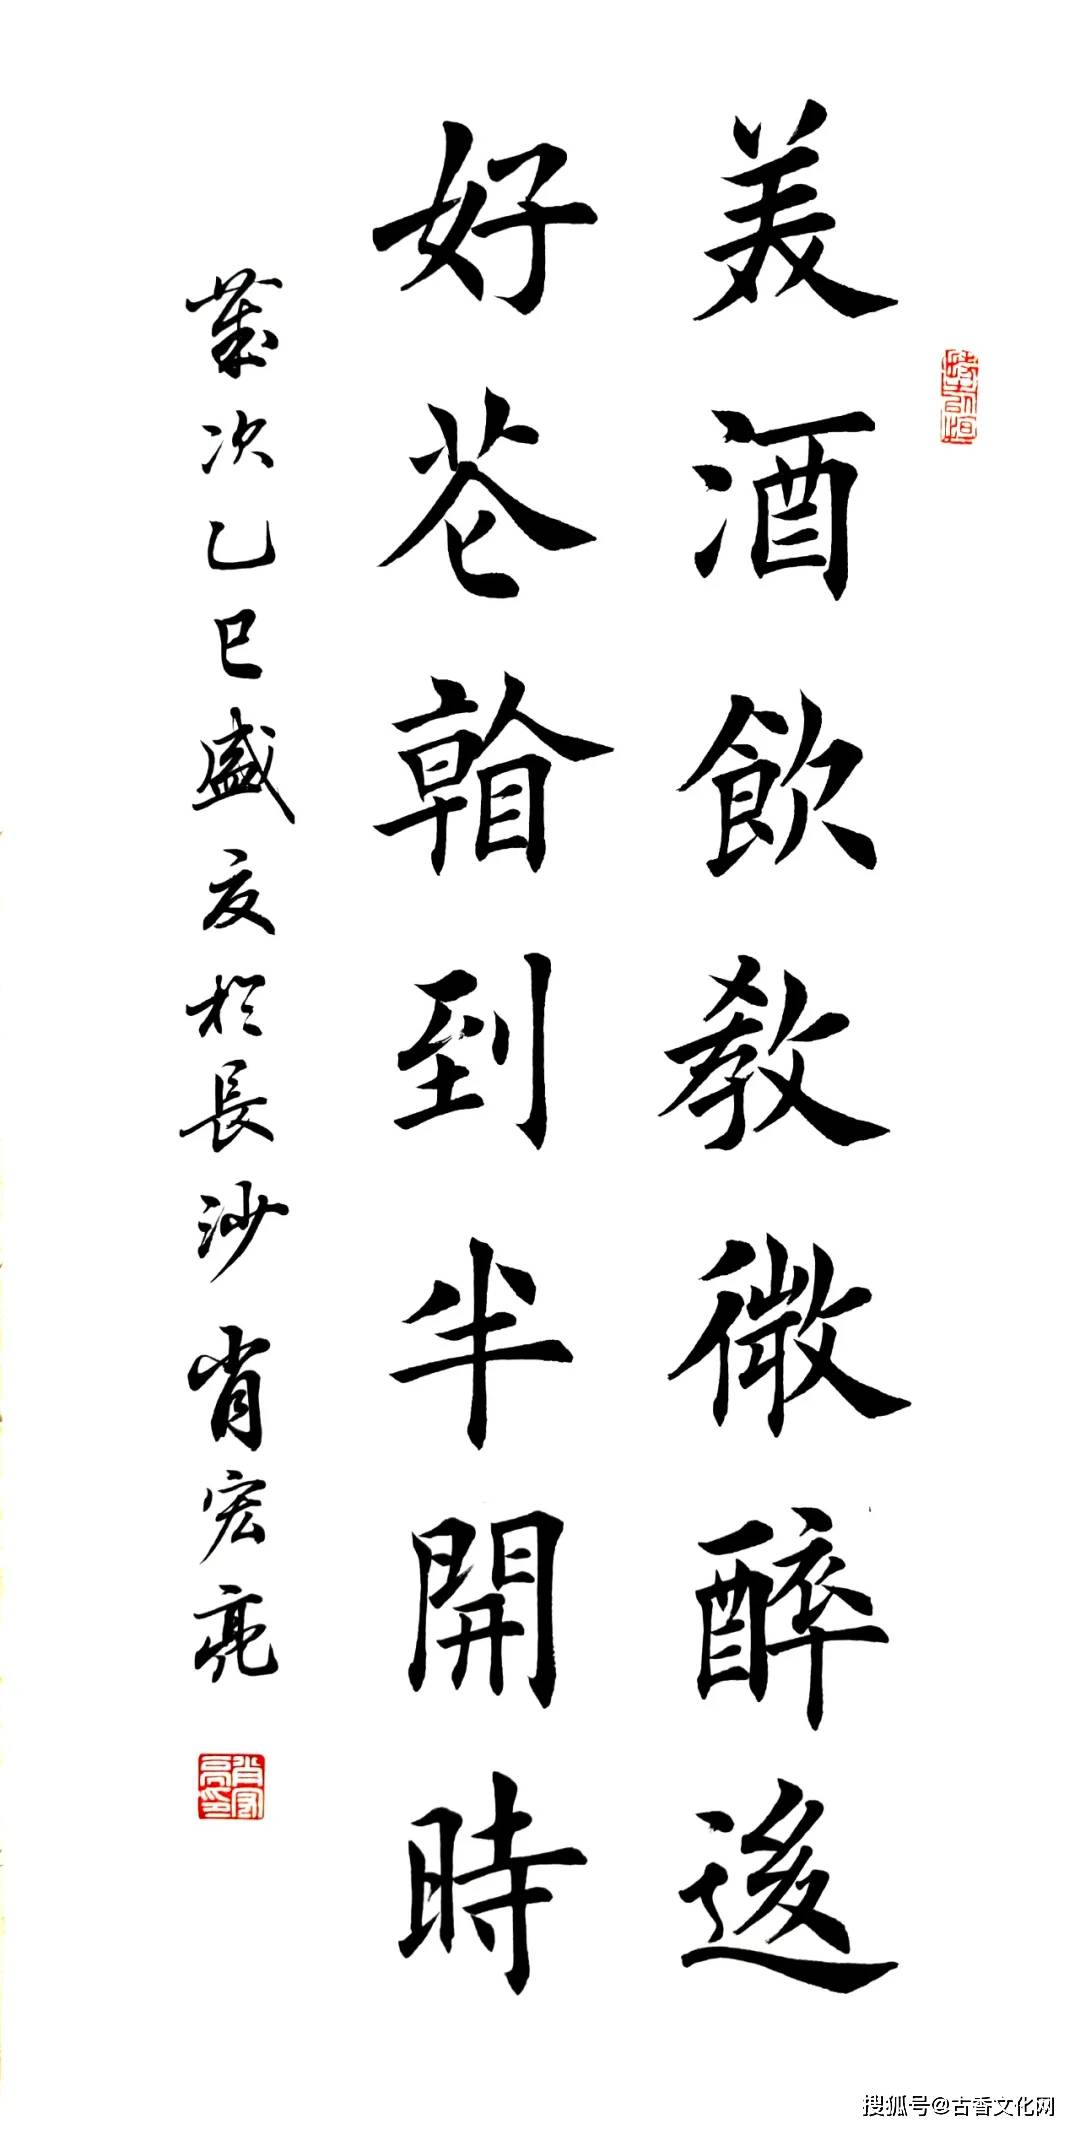 美酒飲教微醉後
好花看到半開時
歲次乙巳盛夏於長沙 肖宏亮
肖宏亮印
搜狐号@古香文化网